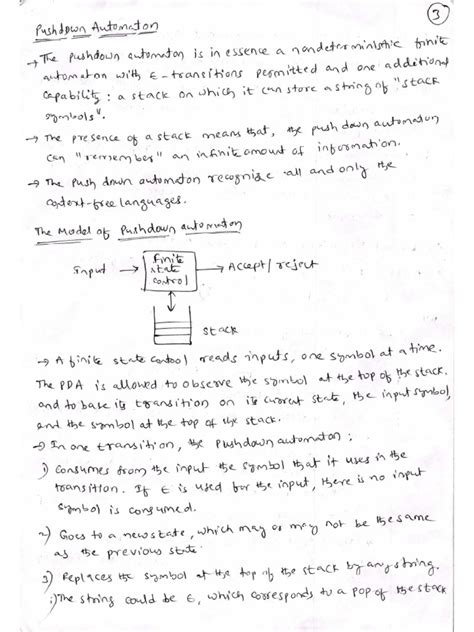 3
Pushdown Automaton
→ The pushdown automaton is in essence a nondeterministic finite
automaton with ε-transitions permitted and one additional
capability: a stack on which it can store a string of "stack
symbols".
→ The presence of a stack means that, the push down automaton
can "remember" an infinite amount of information.
→ The push down automaton recognize all and only the
context-free languages.
The Model of Pushdown automaton
Input → finite → Accept/reject
state
control
stack
→ A finite state control reads inputs, one symbol at a time.
The PDA is allowed to observe the symbol at the top of the stack.
and to base its transition on its current state, the input symbol,
and the symbol at the top of the stack.
→ In one transition, the pushdown automaton:
1) consumes from the input the symbol that it uses in the
transition. If ε is used for the input, there is no input
symbol is consumed.
2) Goes to a new state, which may or may not be the same
as the previous state.
3) Replaces the symbol at the top of the stack by any string.
The string could be ε, which corresponds to a pop of the stack